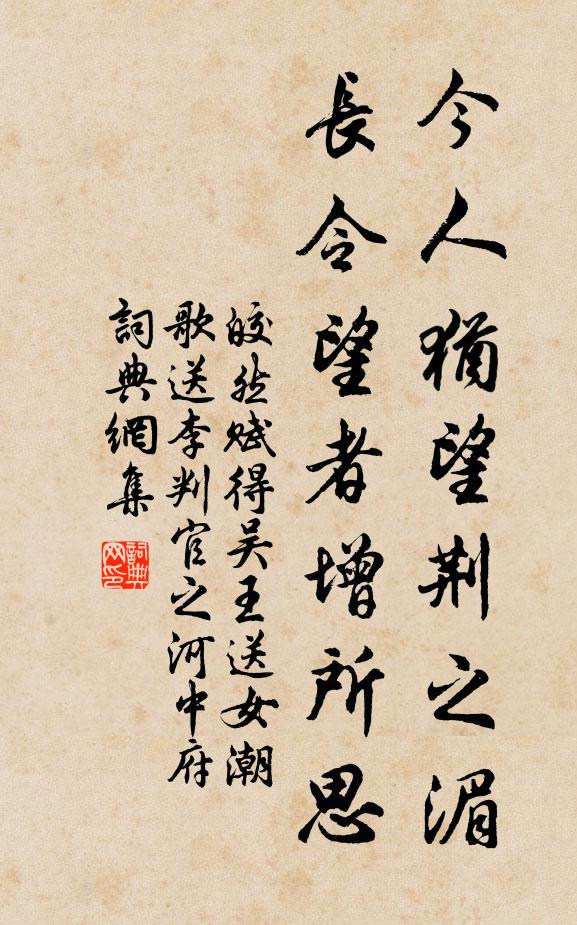 今人猶望荆之湄
長令望者增所思
皎然賦得吴王送女潮
歌送李判官之河中府
詞典網集
詞典网印